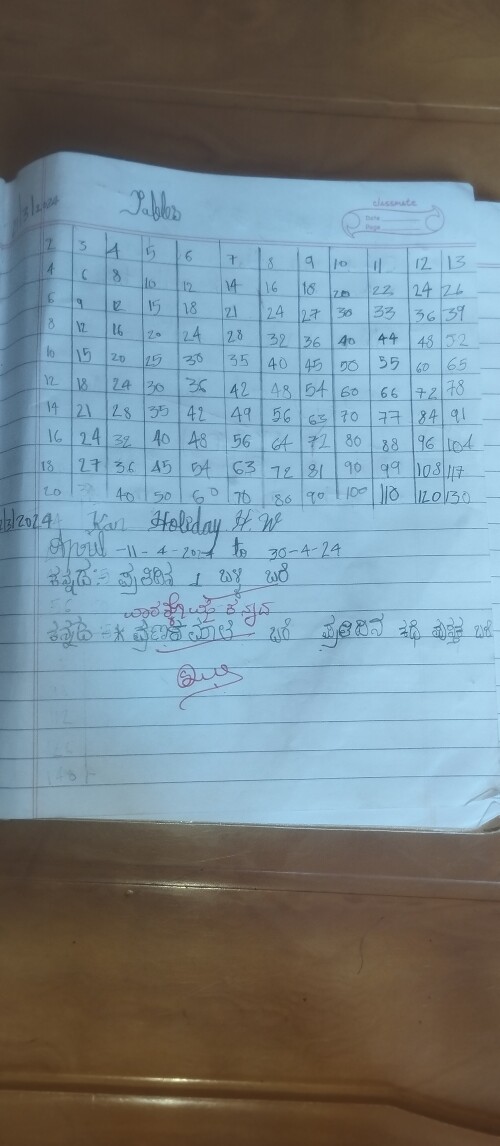 Tables
classmate
Date
Page
2 3 4 5 6 7 8 9 10 11 12 13
4 6 8 10 12 14 16 18 20 22 24 26
6 9 12 15 18 21 24 27 30 33 36 39
8 12 16 20 24 28 32 36 40 44 48 52
10 15 20 25 30 35 40 45 50 55 60 65
12 18 24 30 36 42 48 54 60 66 72 78
14 21 28 35 42 49 56 63 70 77 84 91
16 24 32 40 48 56 64 72 80 88 96 104
18 27 36 45 54 63 72 81 90 99 108 117
20 40 50 60 70 80 90 100 110 120 130
/3/2024 Kan Holiday H.W
April -11-4-2024 to 30-4-24
ಕನ್ನಡ:- ಪ್ರತಿದಿನ 1 ಬಳ್ಳಿ ಬರೆ
ಕನ್ನಡ ಬರೆ ಪ್ರತಿದಿನ ಕಥೆ ಪುಸ್ತಕ